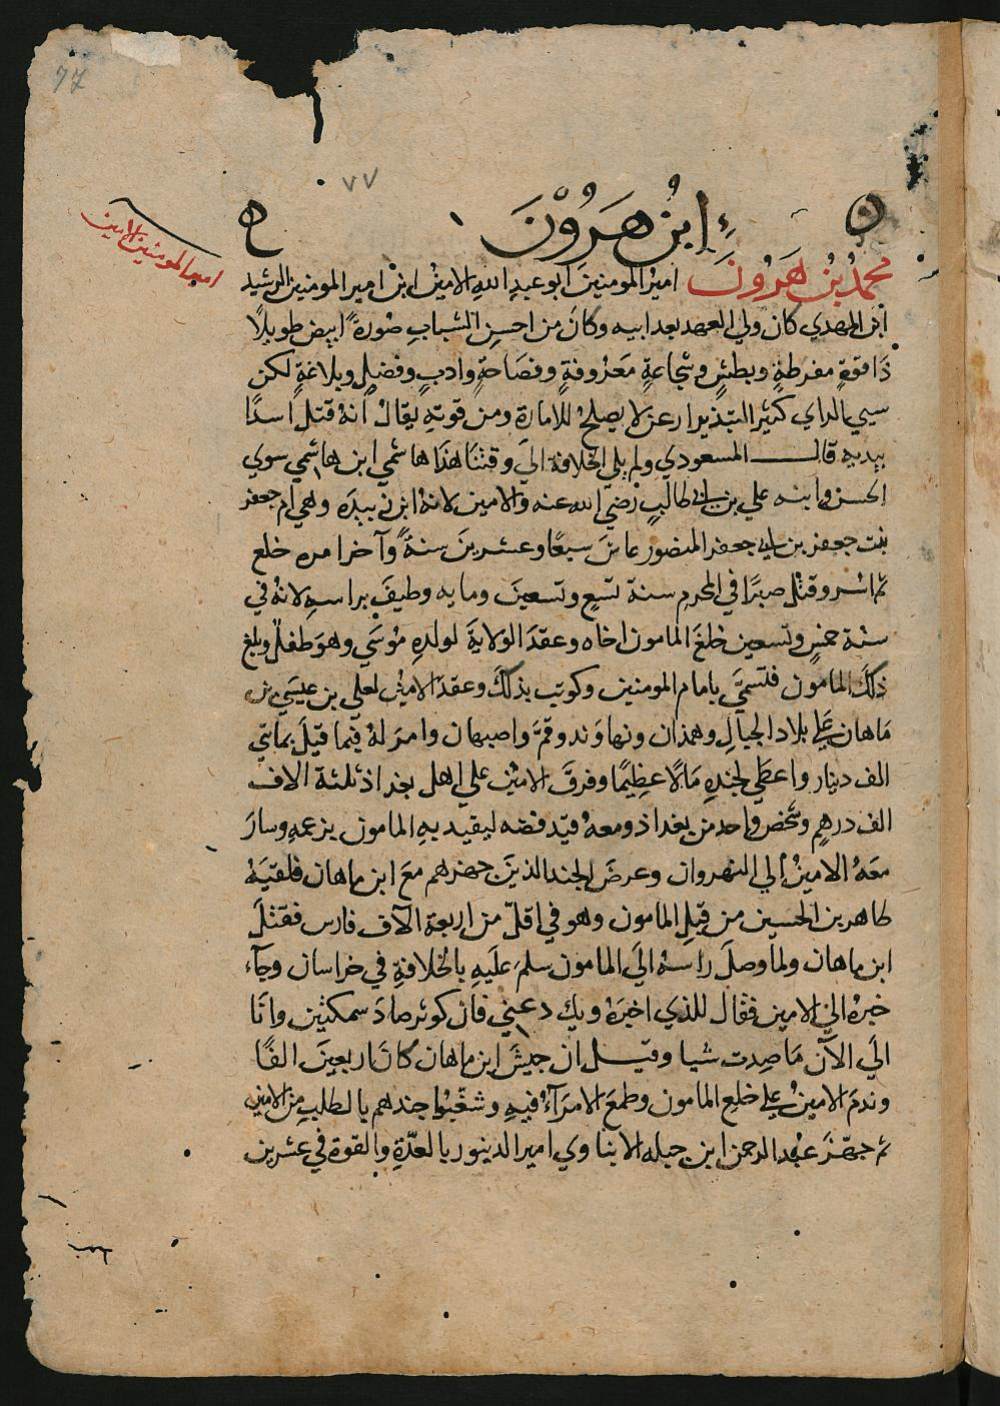 77
٧٧
ابنُ هَرَوُنَ
امير المومنين الامين
محمدُ بنُ هَرَوُنَ اميرُ المومنينَ ابو عبدِ اللهِ الامينُ ابنُ امير المومنين الرشيد
ابن المهدي كان ولي العهد بعد ابيه وكانَ من احسنِ الشبابِ صُورةً ابيض طويلًا
ذَا قوةٍ مفرطةٍ وبطشٍ وشجاعةٍ مَعْروفةٍ وفصَاحةٍ وادبٍ وفضلٍ وبلاغةٍ لكن
سيي الراي كثير التبذير ارعن لا يصلحُ للامارة ومن قوتهِ يقالُ انهُ قتلَ اسدًا
بيديه قال المسعودي ولم يلي الخلافة الي وقتنا هذا هاشمي ابن هاشمي سوي
الحسن وابنه علي بن ابي طالبٍ رضي الله عنه والامين لانهُ ابن زبيدَه وهي ام جعفر
بنت جعفر بن ابي جعفر المنصور عاشَ سبعًا وعشرينَ سنةً وآخر امره خلع
ثم اسر وقتل صبرًا في المحرم سنة تسعٍ وتسعينَ ومايه وطيفَ براسهِ لانهُ في
سنة خمسٍ وتسعين خلعَ المامون اخاه وعقدَ الولايةَ لولدهِ موُسَي وهوَ طفلٌ وبلغ
ذلكَ المامون فتسميَّ بامام المومنين وكوتب بذلكَ وعقدَ الامينُ لعلي بن عيسَي بن
مَاهان علي بلاد الجبالِ وهمذان ونهاوَند وقمَّ واصبهان وامرَ لهُ فيما قيلَ بمائتي
الف دينار واعطَي لجندهِ مَالًا عظِيمًا وفرقَ الامين علي اهل بغداذ ثلثة الاف
الف درهمٍ وشخص واحد من بغداذ ومعهُ قيد فضه ليقيد بهِ المامون بزعمهِ وسارَ
معهُ الامينُ الي النهروان وعرضَ الجند الذينَ جهزهم معَ ابن ماهان فلقيَهُ
طاهر بن الحسين من قبلِ المامون وهو في اقلّ من اربعة الآف فارس فقتلَ
ابن ماهان ولما وصلَ راسهُ اليَ المامون سلمَ علَيهِ بالخلافةِ في خراسان وجآء
خبرهُ الي الامين فقال للذي اخبرَهُ ويلك دعني فان كوثر صادَ سمكتين وانَا
الَي الآن مَا صِدت شيا وقيل ان جيشَ ابن ماهان كانَ اربعينَ الفًا
وندمَ الامينُ علي خلعِ المامون وطمعَ الامرَآءُ فيهِ وشغبُوا جندهم بالطلب من الامين
ثم جهّزَ عبد الرحمن ابن جبله الابناوي امير الدينور بالعدّةِ والقوة في عشرين